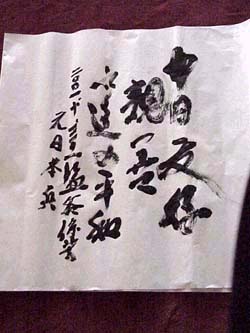 中日友好
親善
永遠の平和
二〇〇一
元日本兵